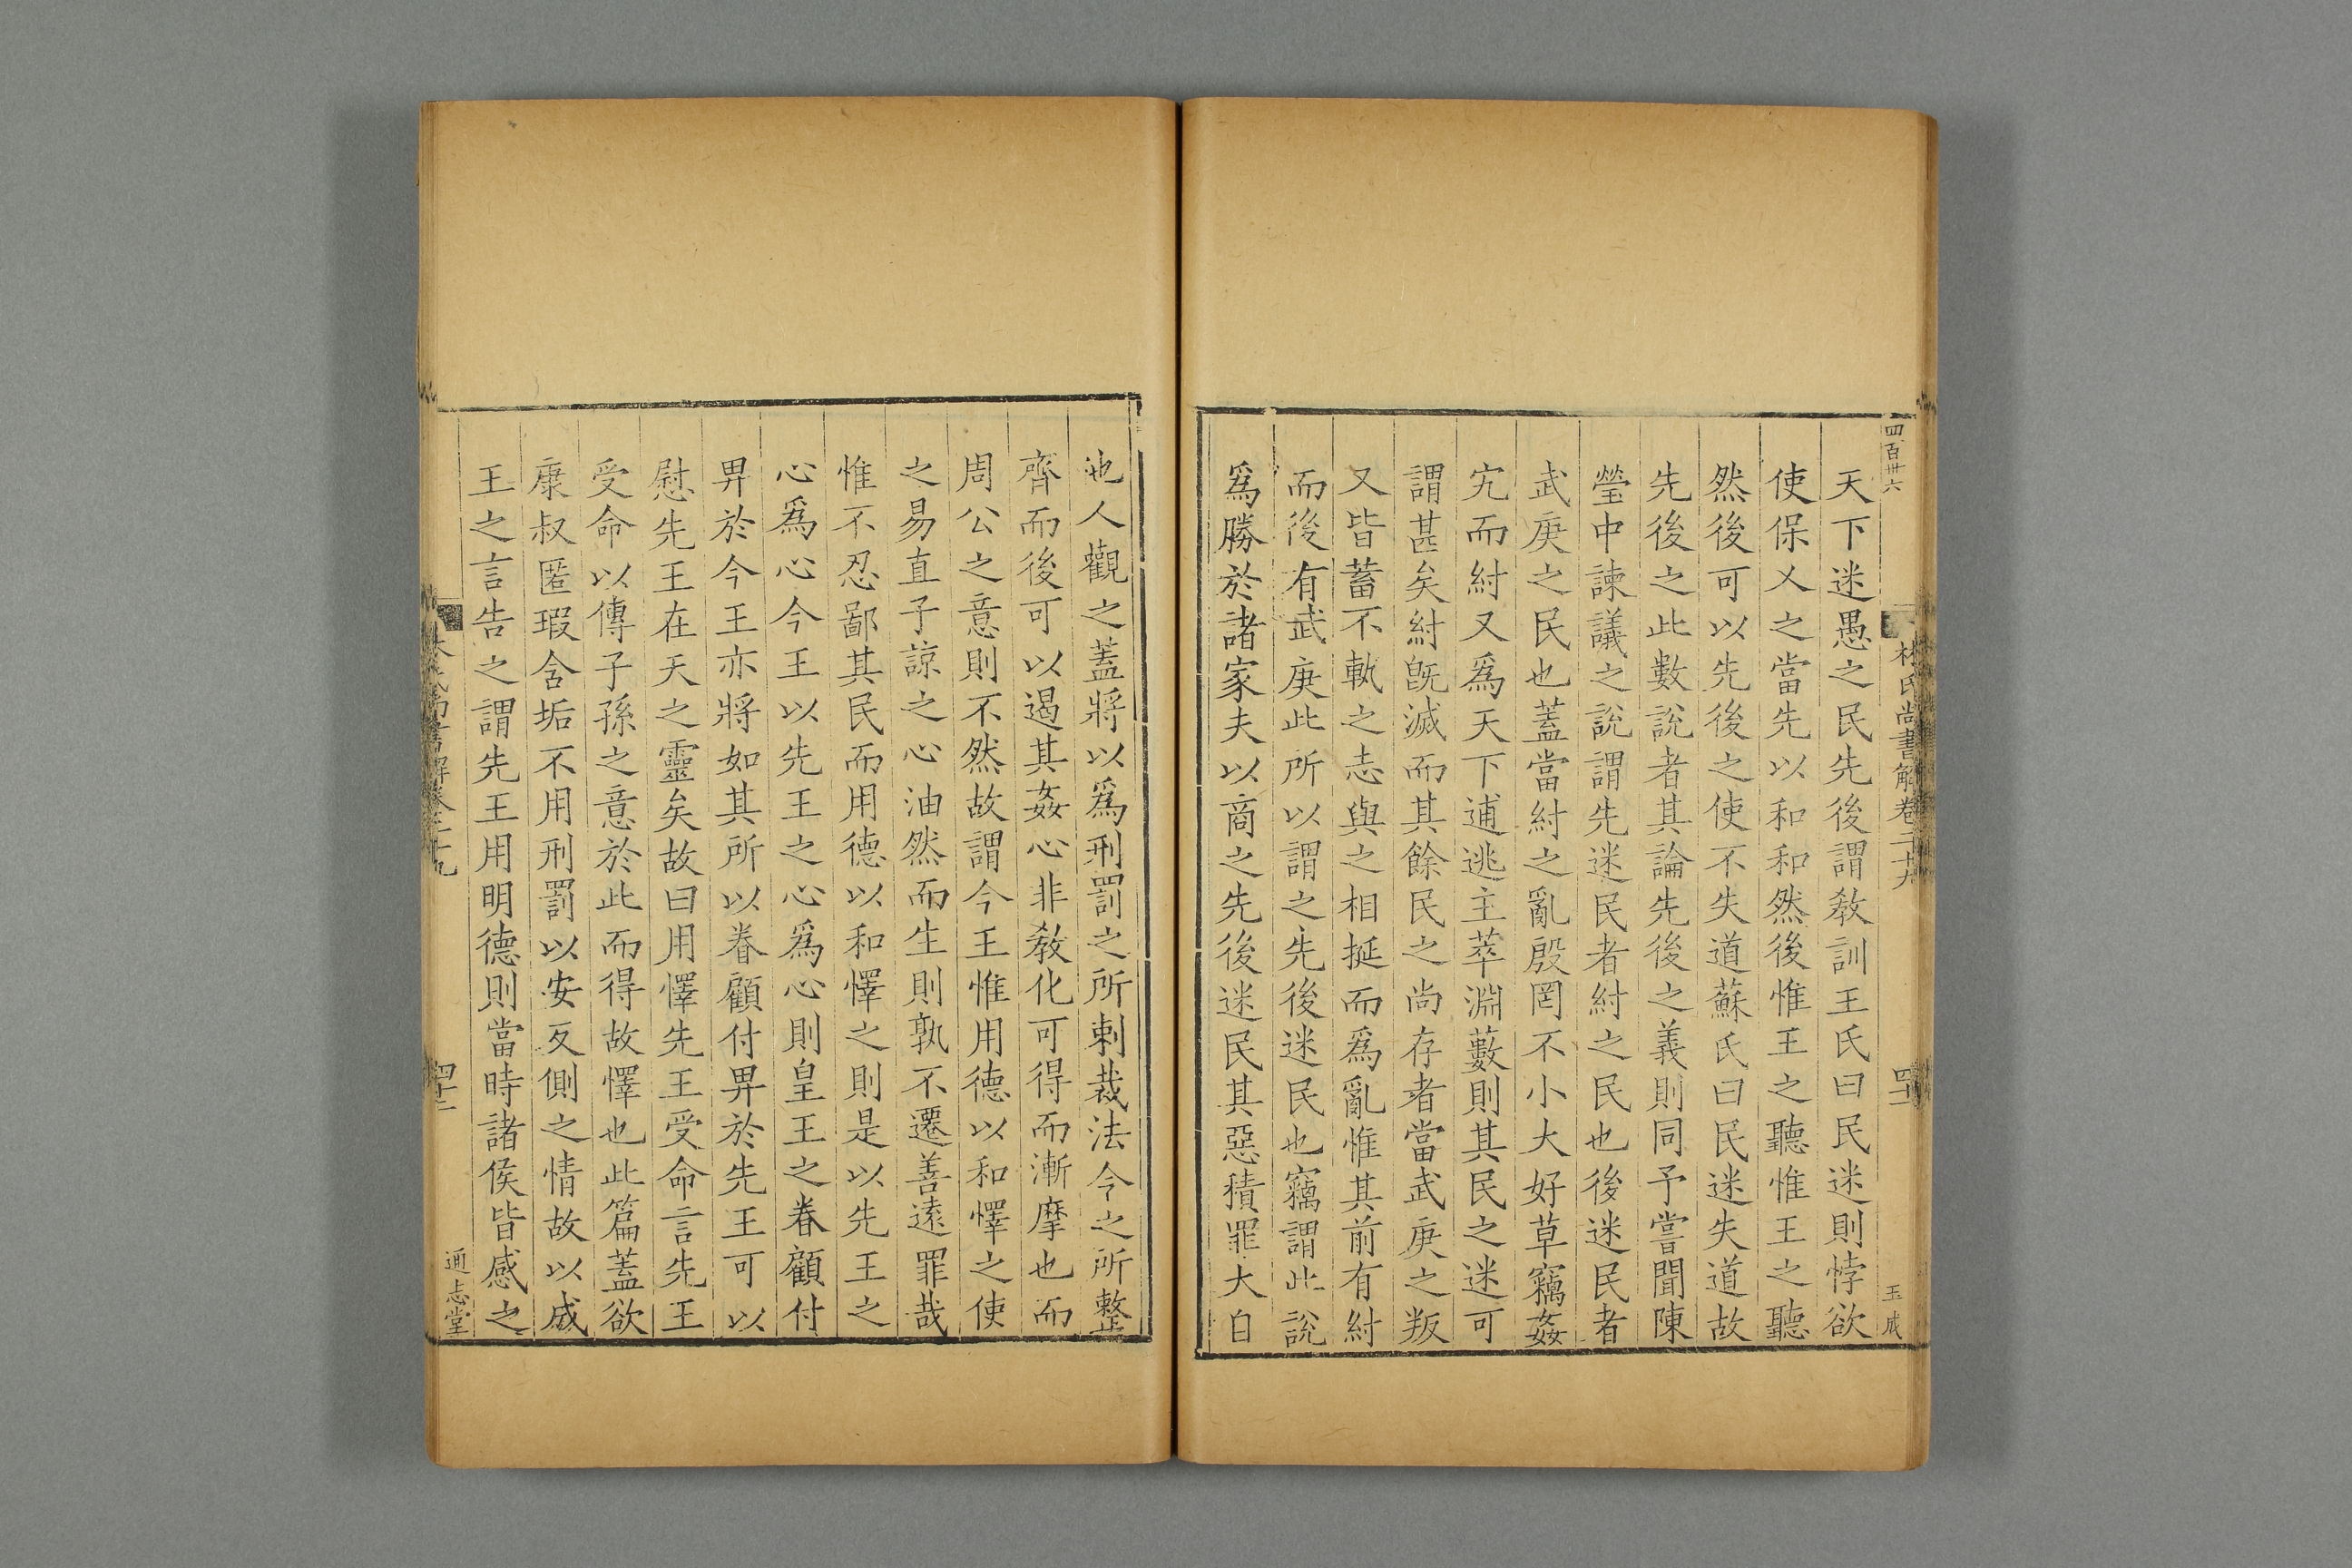 四百卅六
林氏尚書解卷二十九
玉成
天下迷愚之民先後謂敎訓王氏曰民迷則悖欲
使保乂之當先以和和然後惟王之聽惟王之聽
然後可以先後之使不失道蘇氏曰民迷失道故
先後之此數說者其論先後之義則同予嘗聞陳
瑩中諫議之說謂先迷民者紂之民也後迷民者
武庚之民也蓋當紂之亂殷罔不小大好草竊姦
宄而紂又爲天下逋逃主萃淵藪則其民之迷可
謂甚矣紂旣滅而其餘民之尚存者當武庚之叛
又皆蓄不軌之志與之相挻而爲亂惟其前有紂
而後有武庚此所以謂之先後迷民也竊謂此說
爲勝於諸家夫以商之先後迷民其惡積罪大自
他人觀之蓋將以爲刑罰之所剌裁法令之所整
齊而後可以遏其姦心非敎化可得而漸摩也而
周公之意則不然故謂今王惟用德以和懌之使
之易直子諒之心油然而生則孰不遷善遠罪哉
惟不忍鄙其民而用德以和懌之則是以先王之
心爲心今王以先王之心爲心則皇王之眷顧付
畀於今王亦將如其所以眷顧付畀於先王可以
慰先王在天之靈矣故曰用懌先王受命言先王
受命以傳子孫之意於此而得故懌也此篇蓋欲
康叔匿瑕含垢不用刑罰以安反側之情故以戚
王之言告之謂先王用明德則當時諸侯皆感之
通志堂